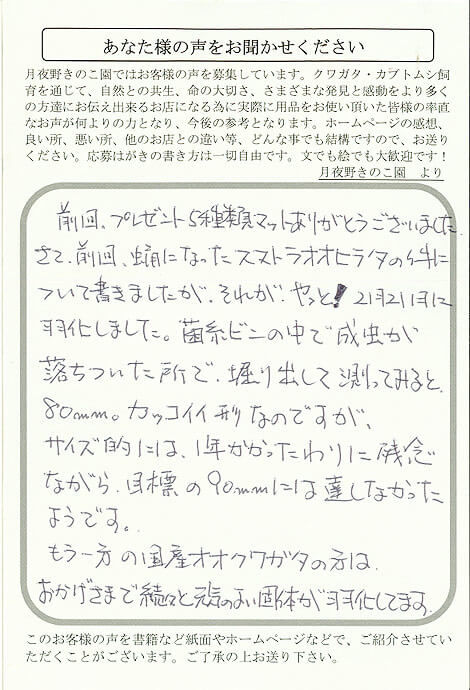 あなた様の声をお聞かせください
月夜野きのこ園ではお客様の声を募集しています。クワガタ・カブトムシ飼
育を通じて、自然との共生、命の大切さ、さまざまな発見と感動をより多く
の方達にお伝え出来るお店になる為に実際に用品をお使い頂いた皆様の率直
なお声が何よりの力となり、今後の参考となります。ホームページの感想、
良い所、悪い所、他のお店との違い等、どんな事でも結構ですので、お送り
ください。応募はがきの書き方は一切自由です。文でも絵でも大歓迎です!
月夜野きのこ園 より
前回、プレゼント5種類マットありがとうございました。
さて、前回、蛹になったスマトラオオヒラタの件に
ついて書きましたが、それが、やっと!2月21日に
羽化しました。菌糸ビンの中で成虫が
落ちついた所で、堀り出して測ってみると、
80mm。カッコイイ形なのですが、
サイズ的には、1年かかったわりに残念
ながら、目標の90mmには達しなかった
ようです。
もう一方の国産オオクワガタの方は、
おかげさまで続々と元気のよい固体が羽化してます。
このお客様の声を書籍など紙面やホームページなどで、ご紹介させてい
ただくことがございます。ご了承の上お送り下さい。